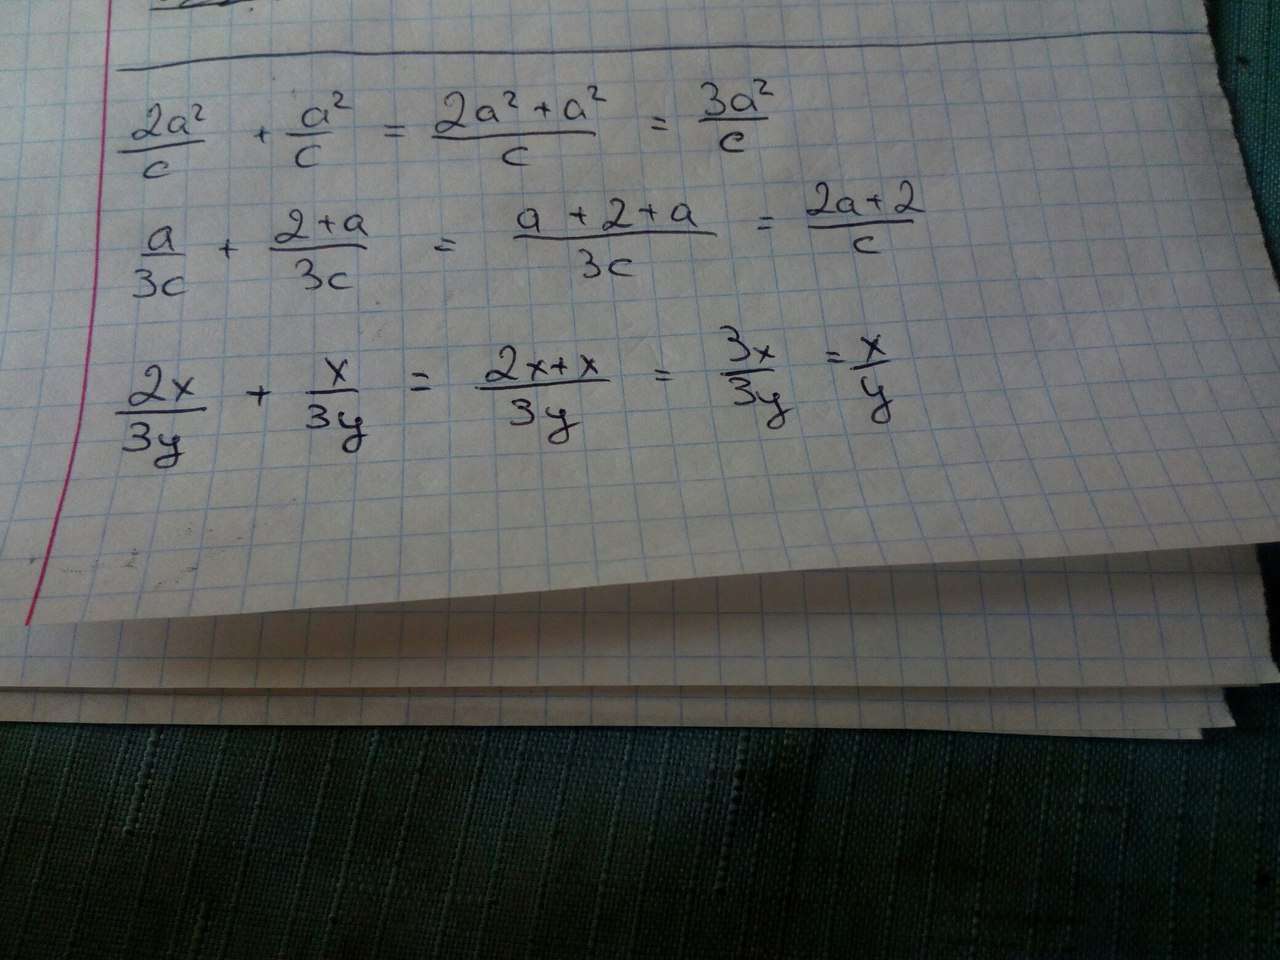 2a²/c + a²/c = (2a² + a²)/c = 3a²/c
a/3c + (2+a)/3c = (a + 2 + a)/3c = (2a+2)/c
2x/3y + x/3y = (2x+x)/3y = 3x/3y = x/y